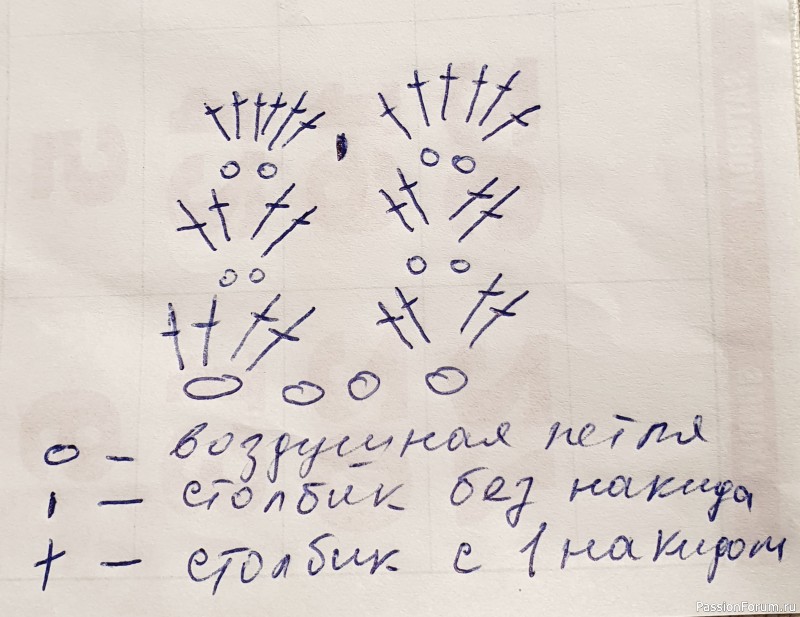 o – воздушная петля
ı – столбик без накида
† – столбик с 1 накидом
PassionForum.ru